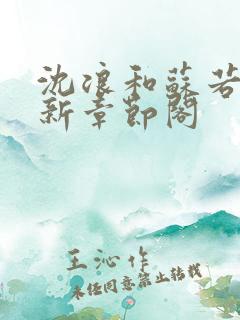 沈浪和蘇若
新章節閣
王沁作
未经同意禁止转载